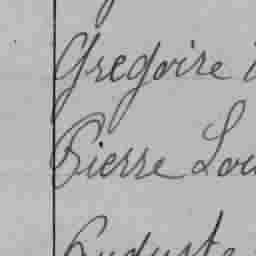 Gregoire
Pierre Lou
Auguste